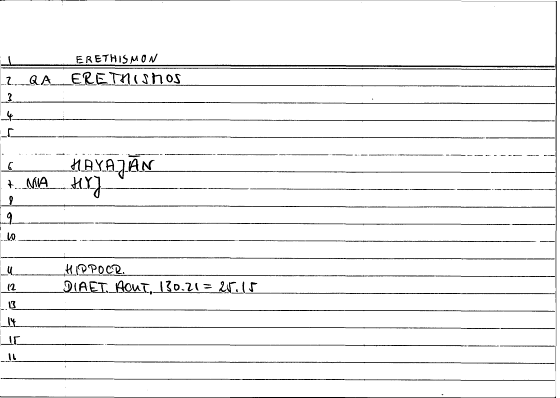 1 ERETHISMON
2 QA ERETHISMOS
3
4
5
6 HAYAJĀN
7 MA HYJ
8
9
10
11 HIPPOCR.
12 DIAET. ACUT. 130.21 = 25.15
13
14
15
16